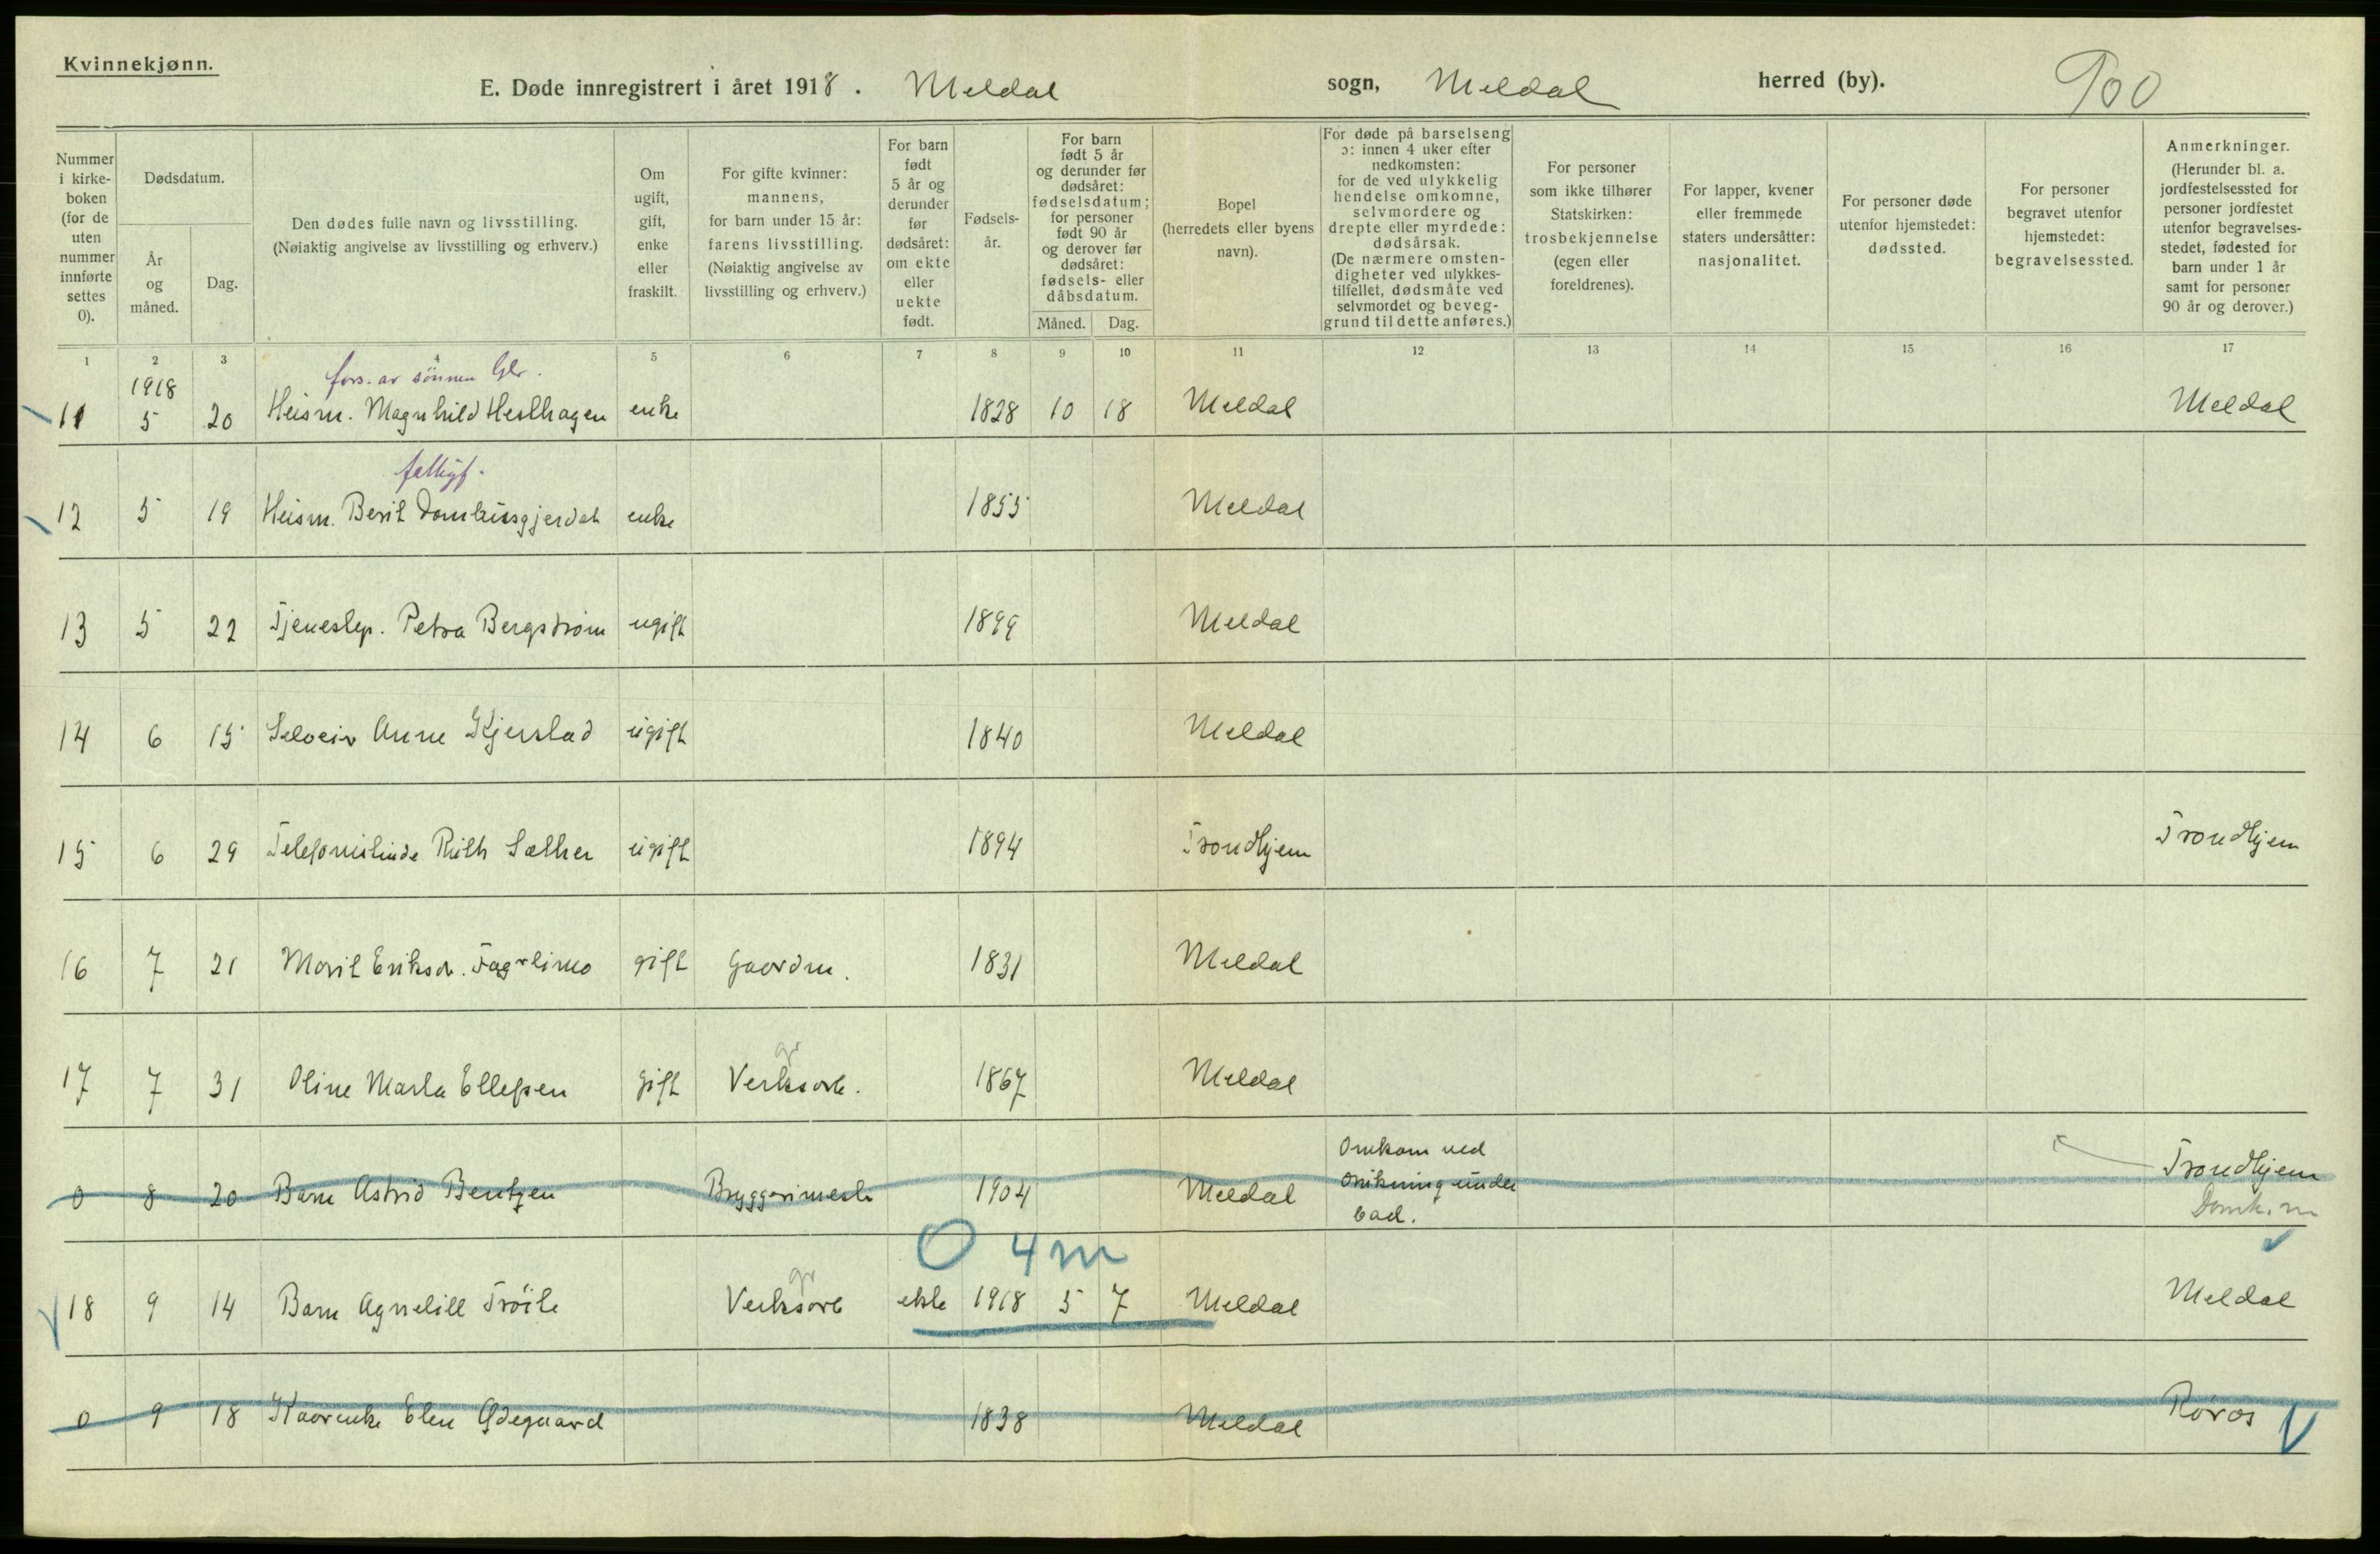 Kvinnekjønn.
E. Døde innregistrert i året 1918. Meldal sogn, Meldal herred (by). 900
Nummer i kirke-boken (for de uten nummer innførte settes 0).
Dødsdatum.
År og måned.
Dag.
Den dødes fulle navn og livsstilling.
(Nøiaktig angivelse av livsstilling og erhverv.)
Om ugift, gift, enke eller fraskilt.
For gifte kvinner: mannens, for barn under 15 år: farens livsstilling. (Nøiaktig angivelse av livsstilling og erhverv.)
For barn født 5 år og derunder før dødsåret: om ekte eller uekte født.
Fødsels-år.
For barn født 5 år og derunder før dødsåret: fødselsdatum; for personer født 90 år og derover før dødsåret: fødsels- eller dåbsdatum.
Måned. Dag.
Bopel (herredets eller byens navn).
For døde på barselseng ɔ: innen 4 uker efter nedkomsten: for de ved ulykkelig hendelse omkomne, selvmordere og drepte eller myrdede: dødsårsak. (De nærmere omsten-digheter ved ulykkes-tilfellet, dødsmåte ved selvmordet og beveg-grund til dette anføres.)
For personer som ikke tilhører Statskirken: trosbekjennelse (egen eller foreldrenes).
For lapper, kvener eller fremmede staters undersåtter: nasjonalitet.
For personer døde utenfor hjemstedet: dødssted.
For personer begravet utenfor hjemstedet: begravelsessted.
Anmerkninger. (Herunder bl. a. jordfestelsessted for personer jordfestet utenfor begravelses-stedet, fødested for barn under 1 år samt for personer 90 år og derover.)
1 2 3 4 5 6 7 8 9 10 11 12 13 14 15 16 17
1918 fors. av sönnen Gbr.
11 5 20 Husm. Magnhild enke 1828 10 18 Meldal Meldal
fattigf.
12 5 19 Husm. Berit enke 1855 Meldal
13 5 22 Tjenestep. Petra Bergstrøm ugift 1899 Meldal
14 6 15 Anne ugift 1840 Meldal
15 6 29 Telefonistinde Ruth Sæther ugift 1894 Trondhjem Trondhjem
16 7 21 Marit Eriksdr. Fagerlimo gift Gaardm. 1831 Meldal
gr
17 7 31 Oline Marta Ellefsen gift Verksarb. 1867 Meldal
0 8 20 Barn Astrid Bentzen Bryggerimestr 1904 Meldal Omkom ved drukning under bad. Trondhjem
Domk. m
0 4 m
gr
18 9 14 Barn Agnelill Tröite Verksarb ekte 1918 5 7 Meldal Meldal
0 9 18 Kaarenke Elen Ødegaard 1838 Meldal Røros